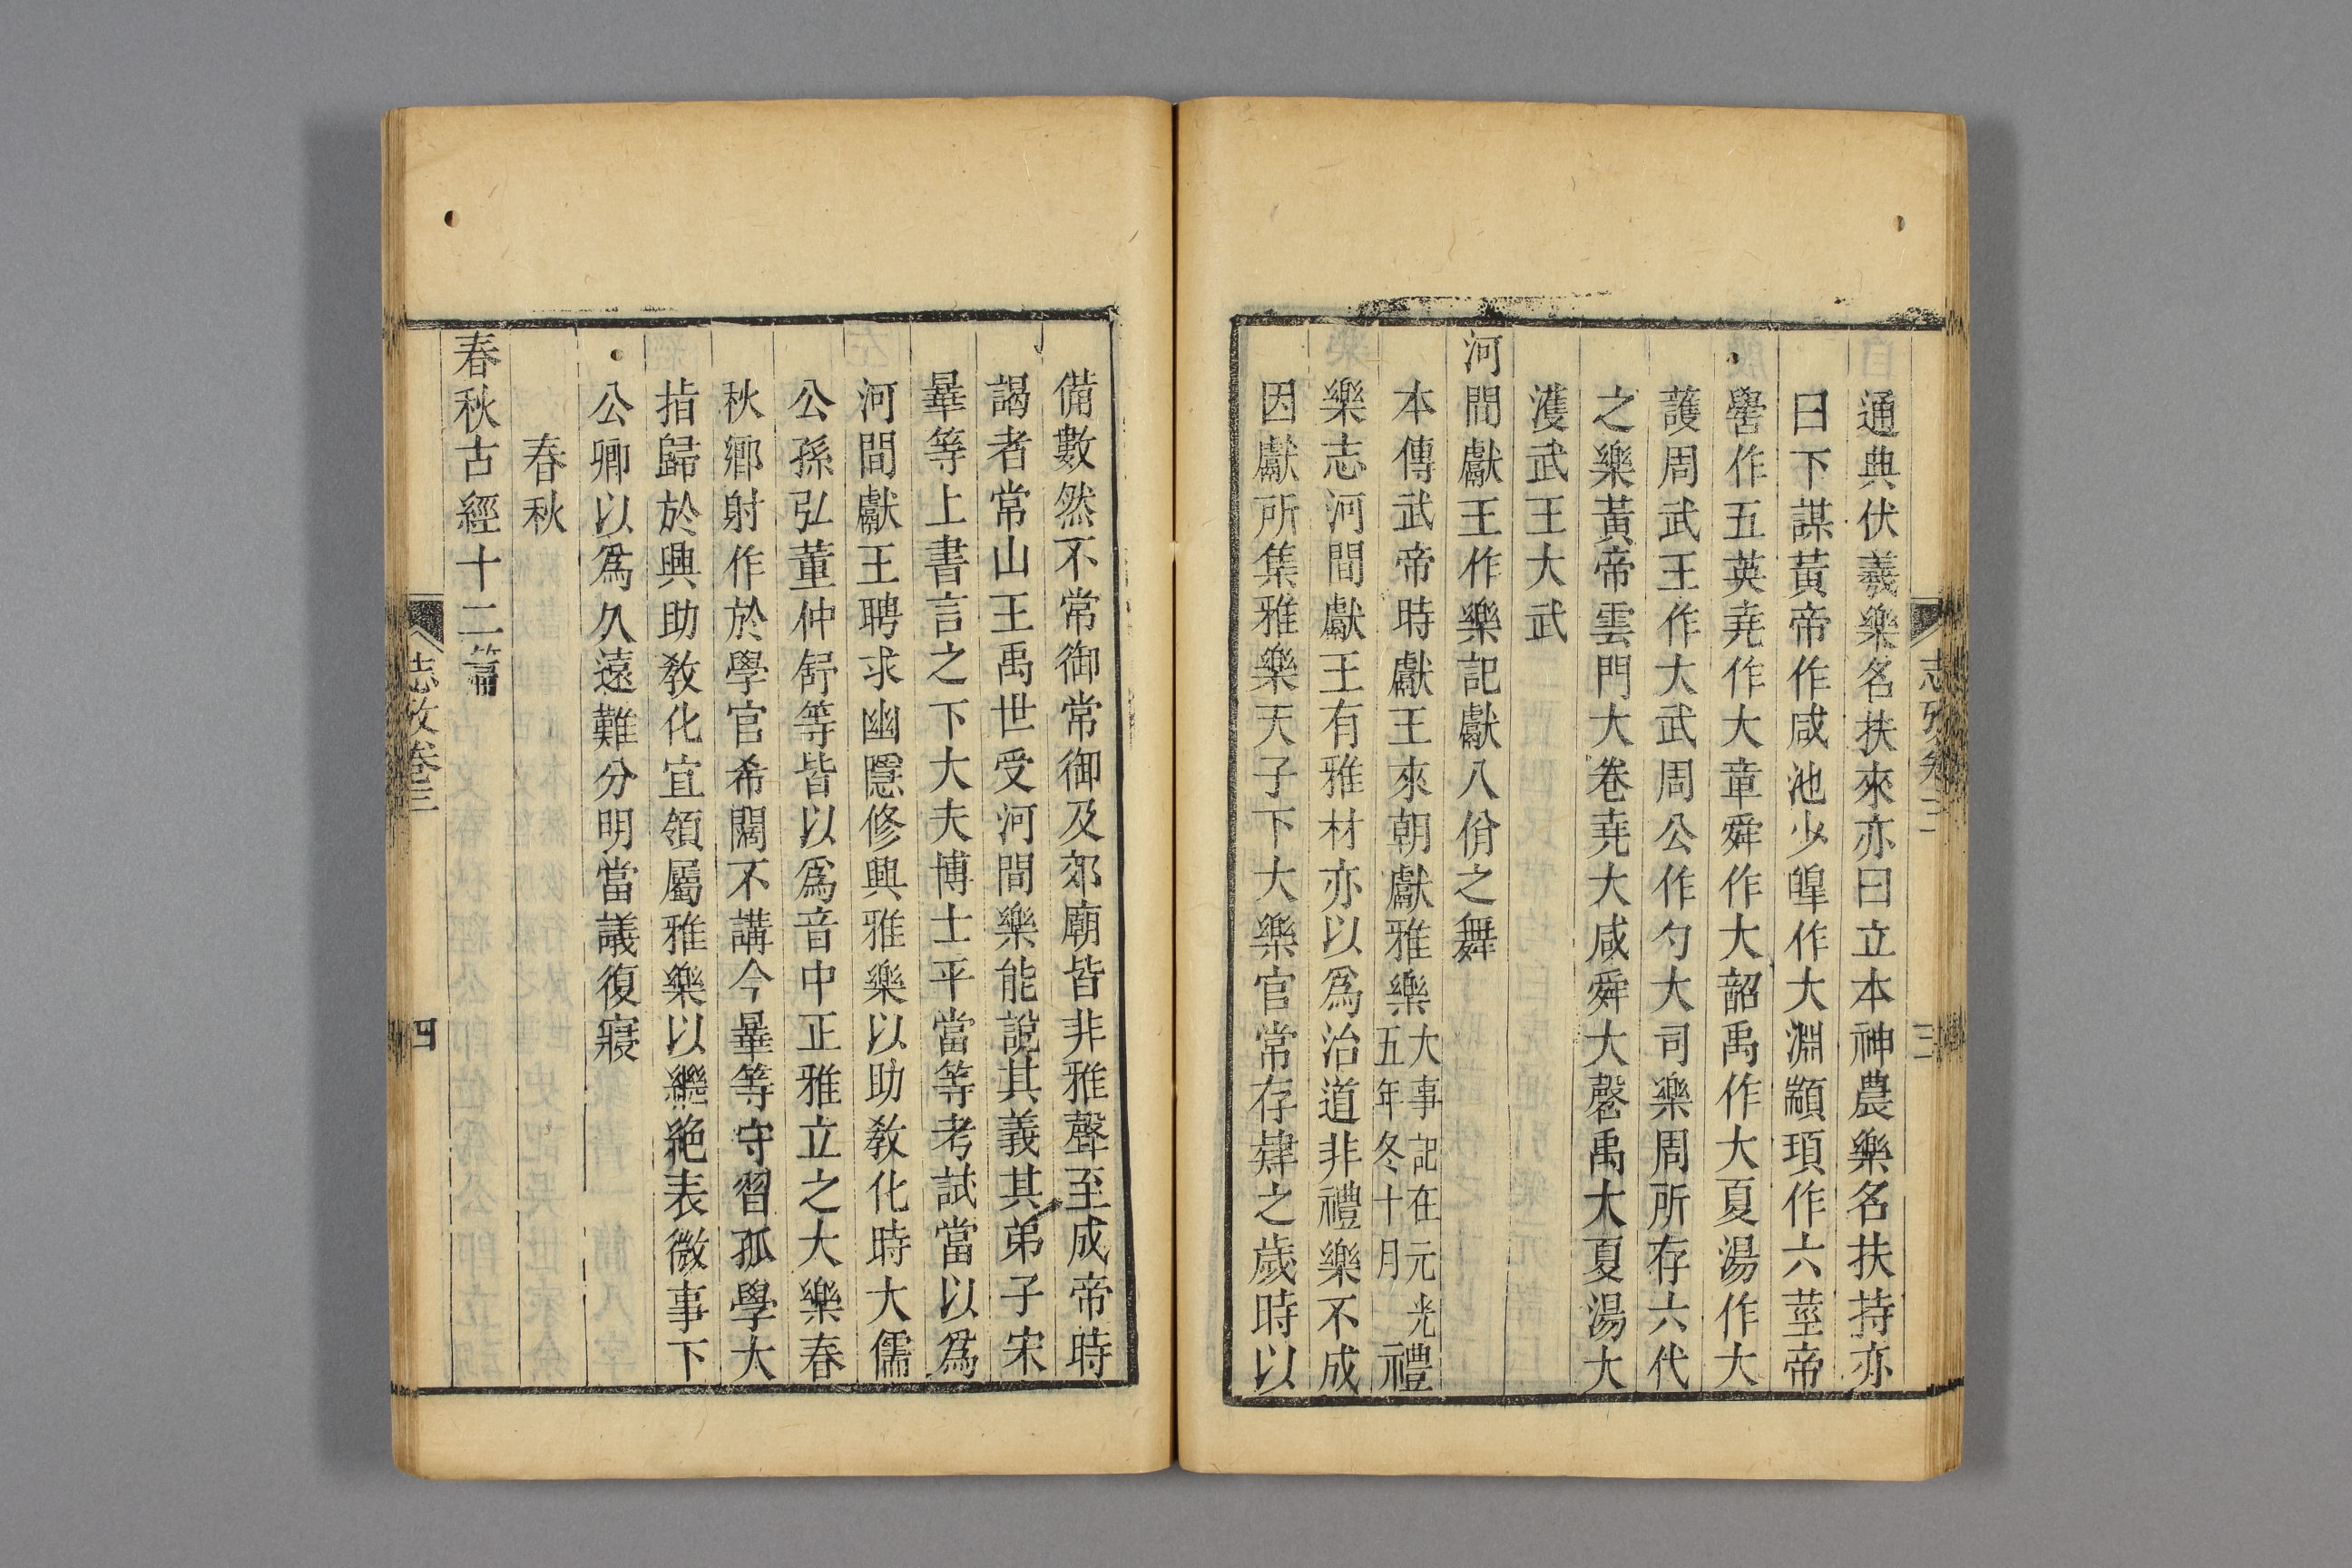 通典伏羲樂名扶來亦曰立本神農樂名扶持亦
曰下謀黃帝作咸池少皥作大淵顓頊作六莖帝
嚳作五英堯作大章舜作大韶禹作大夏湯作大
護周武王作大武周公作勺大司樂周所存六代
之樂黃帝雲門大卷堯大咸舜大磬禹大夏湯大
濩武王大武
河間獻王作樂記獻八佾之舞
本傳武帝時獻王來朝獻雅樂大事記在元光五年冬十月禮
樂志河間獻王有雅材亦以爲治道非禮樂不成
因獻所集雅樂天子下大樂官常存肄之歲時以
志攷卷三
三
備數然不常御常御及郊廟皆非雅聲至成帝時
謁者常山王禹世受河間樂能說其義其弟子宋
㬥等上書言之下大夫博士平當等考試當以爲
河間獻王聘求幽隱修興雅樂以助教化時大儒
公孫弘董仲舒等皆以爲音中正雅立之大樂春
秋鄉射作於學官希闊不講今㬥等守習孤學大
指歸於興助教化宜領屬雅樂以繼絶表微事下
公卿以爲久遠難分明當議復寢
春秋
春秋古經十二篇
志攷卷三
四